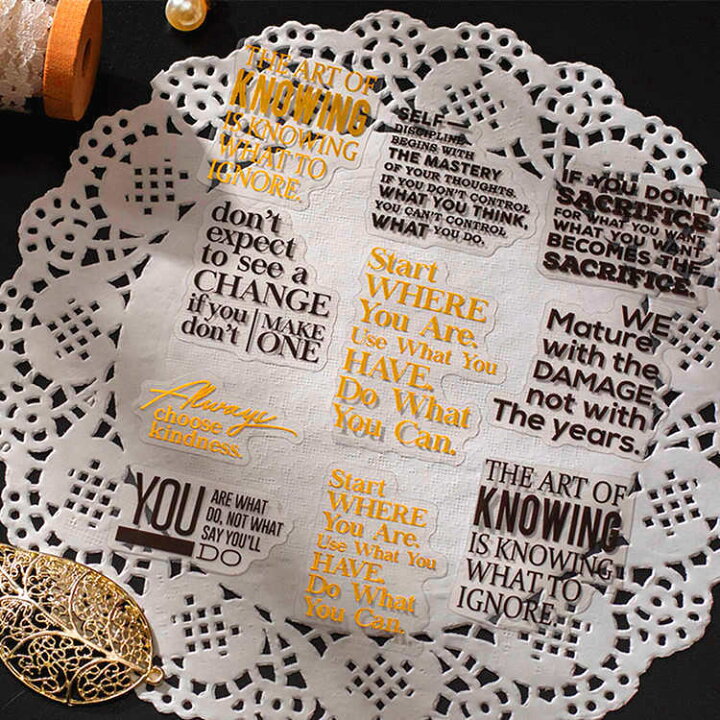 THE ART OF
KNOWING
IS KNOWING
WHAT TO
IGNORE.
SELF—
DISCIPLINE
BEGINS WITH
THE MASTERY
OF YOUR THOUGHTS.
IF YOU DON'T CONTROL
WHAT YOU THINK,
YOU CAN'T CONTROL
WHAT YOU DO.
IF YOU DON'T
SACRIFICE
FOR WHAT YOU WANT
WHAT YOU WANT
BECOMES THE
SACRIFICE.
don't
expect
to see a
CHANGE
if you
don't
MAKE
ONE
Start
WHERE
You Are.
Use What You
HAVE.
Do What
You Can.
WE
Mature
with the
DAMAGE
not with
The years.
Always
choose
kindness.
YOU
ARE WHAT
DO, NOT WHAT
SAY YOU'LL
DO
Start
WHERE
You Are.
Use What You
HAVE.
Do What
You Can.
THE ART OF
KNOWING
IS KNOWING
WHAT TO
IGNORE.